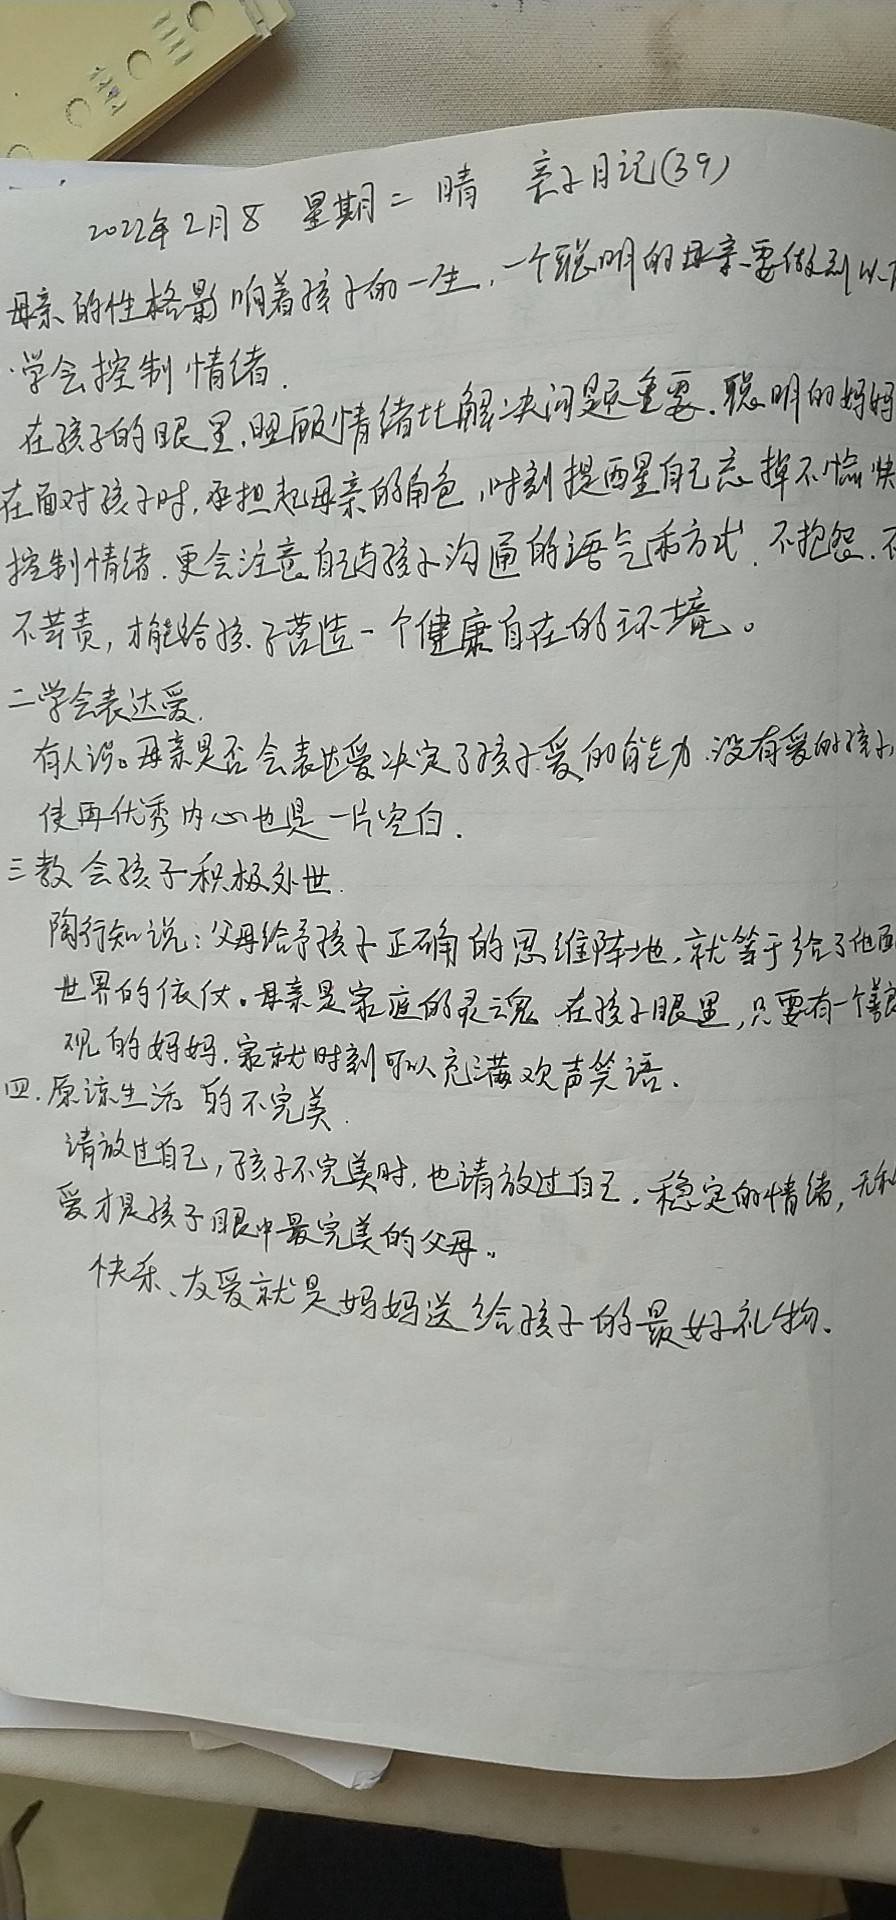 2022年2月8 星期二 晴 亲子日记(39)
母亲的性格影响着孩子的一生,一个聪明的母亲要做到以
·学会控制情绪.
在孩子的眼里,照顾情绪比解决问题还重要.聪明的妈妈
在面对孩子时,承担起母亲的角色,时刻提醒自己忘掉不愉快
控制情绪.更会注意自己与孩子沟通的语气和方式.不抱怨.不
不苛责,才能给孩子营造一个健康自在的环境。
二学会表达爱.
有人说。母亲是否会表达爱决定了孩子爱的能力.没有爱的孩子,
使再优秀内心也是一片空白.
三教会孩子积极处世.
陶行知说:父母给予孩子正确的思维阵地,就等于给了他面
世界的依仗。母亲是家庭的灵魂 在孩子眼里,只要有一个善
观的妈妈.家就时刻可以充满欢声笑语.
四.原谅生活的不完美.
请放过自己,孩子不完美时,也请放过自己.稳定的情绪,无私
爱才是孩子眼中最完美的父母。
快乐、友爱就是妈妈送给孩子的最好礼物.